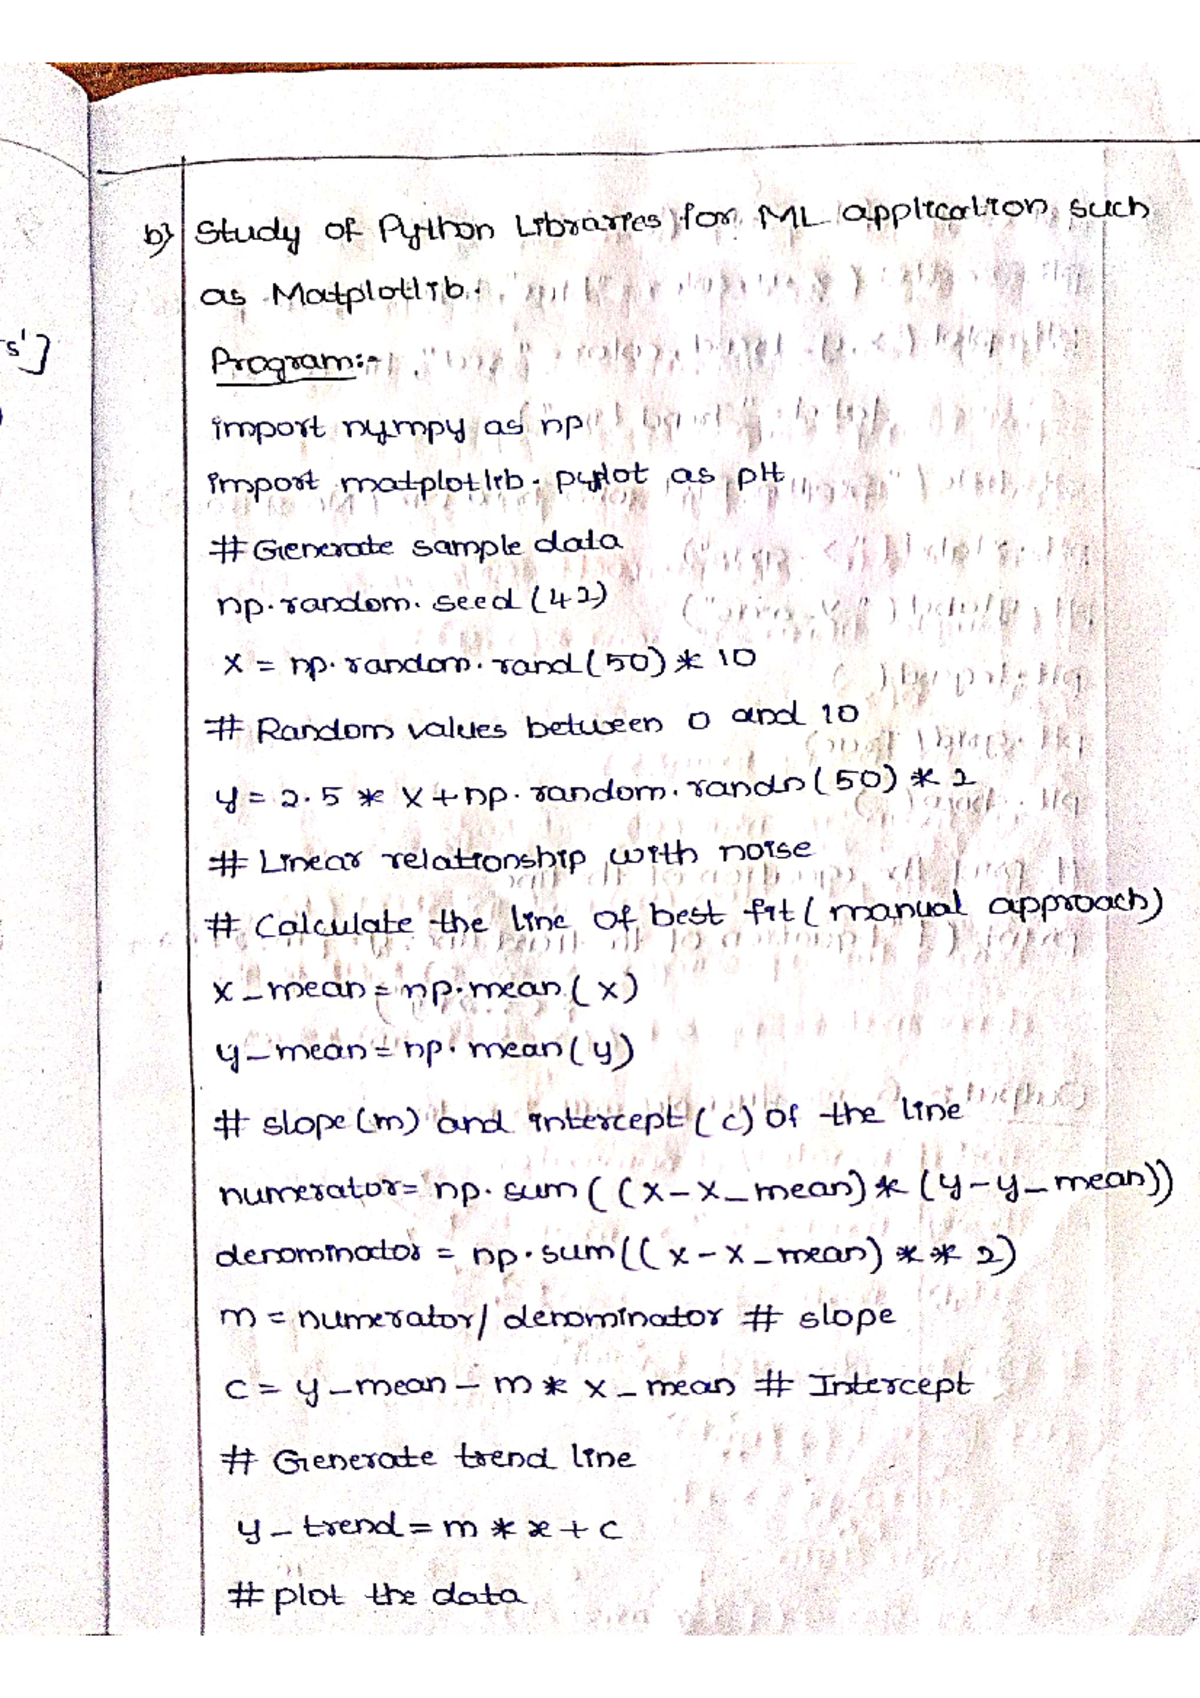 s']
b) Study of Python Libraries for ML application, such
as Matplotlib.
Program:-
import nympy as np
import matplotlib. pyplot as plt
# Generate sample data
np.random. seed (42)
x = np. random. rand (50) * 10
# Random values between 0 and 10
y = 2.5 * x + np. random. randn (50) * 2
# Linear relationship with noise
# Calculate the line of best fit ( manual approach)
x_mean = np.mean (x)
y_mean = np. mean (y)
# slope (m) and intercept ( c) of the line
numerator= np. sum ( (x-x_mean) * (y-y_mean))
denominator = np. sum (( x - x_mean) ** 2)
m = numerator/ denominator # slope
c = y_mean - m * x_mean # Intercept
# Generate trend line
y_trend = m * x + c
# plot the data